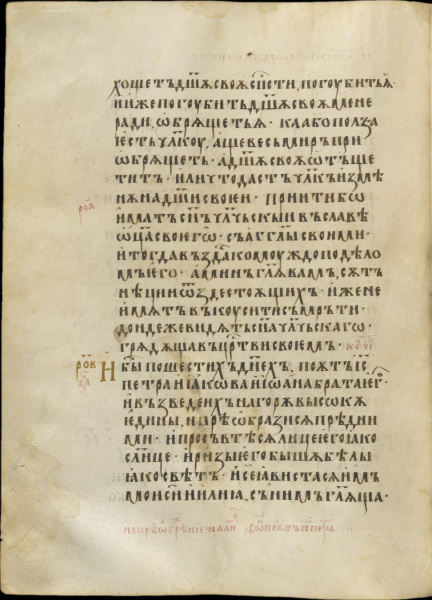 хощетъ дш҃ѫ своѫ сп҃сти, погоубитъ ѫ·
и иже погоубитъ дш҃ѫ своѫ мене
ради, ѡбрѧщетъ ѫ· каа бо полза
естъ чл҃коу, аще весь миръ при
ѡбрѧщеть· а дш҃ѫ своѫ ѡтъще
титъ· или что дастъ чл҃къ измѣ
нѫ на дш҃и своеи· прїити бѡ
иматъ сн҃ъ чл҃чьскыи въ славѣ
ѡц҃а своегѡ· съ агг҃лы своими·
и тогда въздастъ комоуждо по дѣло
мъ его· аминъ гл҃ѫ вамъ, сѫтъ
нѣции ѿ зде стоѧщихъ· иже не
имѫтъ въкоусити съмръти·
дондеже видѧтъ сн҃а чл҃чьскагѡ·
грѧдѫща въ цр҃тви своемъ·
И бы по шестихъ дн҃ехъ, поѫтъ іс҃
петра и іакѡва и іѡанна брата ег҃·
и възведе ихъ на горѫ высокѫ
едины, и прѣѡбразисѧ прѣд ни
ми· и просвѣтѣсѧ лице его ꙗко
сл҃нце· и ризы его бышѫ бѣлы
ꙗко свѣтъ· и се ꙗвистасѧ имъ
мѡиси и илиа, съ нимъ гл҃ѧща·